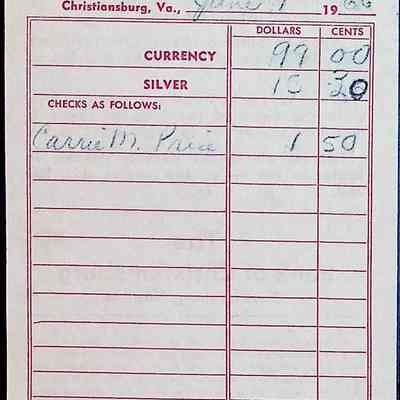 Christiansburg, Va., June 19
DOLLARS CENTS
CURRENCY 99 00
SILVER 15 20
CHECKS AS FOLLOWS:
Carrie M. Price 1 50